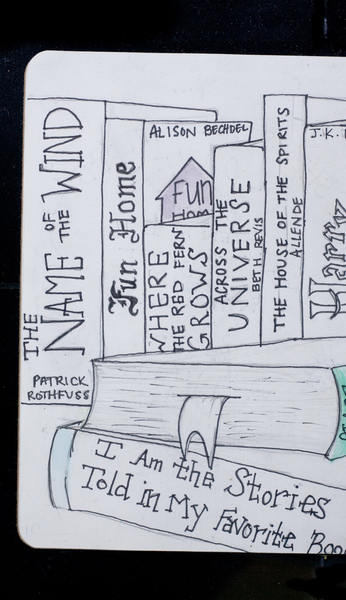 THE
NAME OF
THE WIND
PATRICK
ROTHFUSS
Fun Home
ALISON BECHDEL
Fun
Home
WHERE
THE RED FERN
GROWS
ACROSS THE
UNIVERSE
BETH REVIS
THE HOUSE OF THE SPIRITS
ALLENDE
J.K.
I Am the Stories
Told in My Favorite Boo